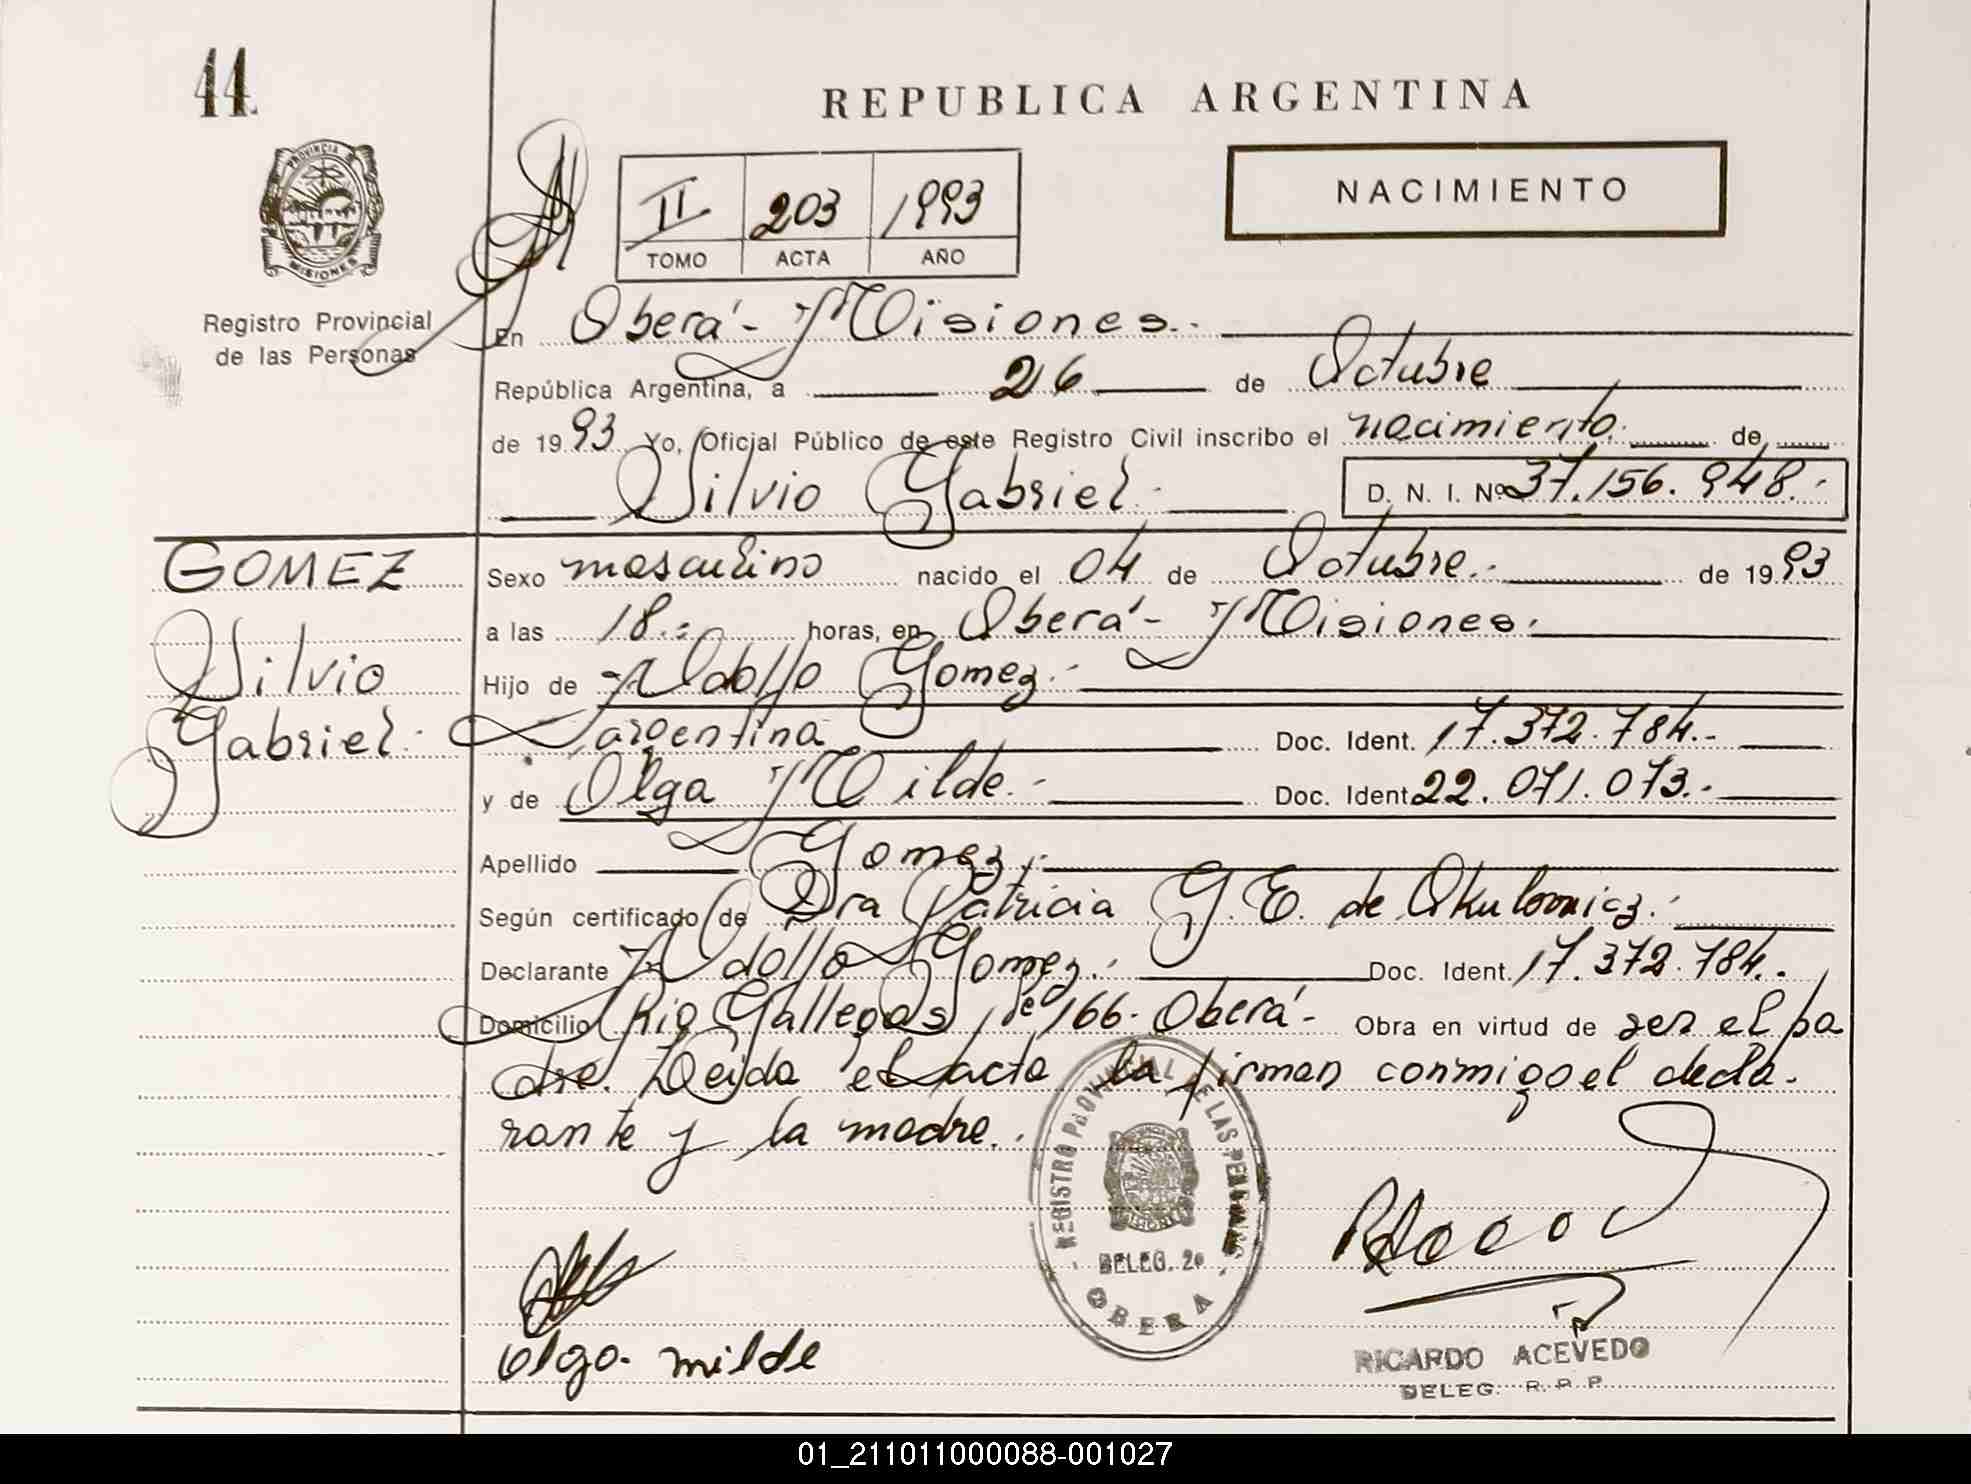 44
REPUBLICA ARGENTINA
PROVINCIA
MISIONES
II 203 1993
TOMO ACTA AÑO
NACIMIENTO
Registro Provincial
de las Personas
En Oberá - Misiones.-
República Argentina, a 26 de Octubre
de 1993 Yo, Oficial Público de este Registro Civil inscribo el nacimiento de
Silvio Gabriel.- D. N. I. Nº 37.156.948.-
GOMEZ
Silvio
Gabriel.-
Sexo masculino nacido el 04 de Octubre.- de 1993
a las 18.- horas, en Oberá - Misiones.-
Hijo de Adolfo Gomez.-
argentina Doc. Ident. 17.372.784.-
y de Olga Milde.- Doc. Ident. 22.071.073.-
Apellido Gomez.-
Según certificado de Dra Patricia G.E. de Okulovicz.-
Declarante Adolfo Gomez.- Doc. Ident. 17.372.784.-
Domicilio Rio Gallegos 166. Oberá - Obra en virtud de ser el pa
dre. Leida el acta la firman conmigo el decla-
rante y la madre.-
REGISTRO PROVINCIAL DE LAS PERSONAS
DELEG. 2a
OBERA
olga. milde
RICARDO ACEVEDO
DELEG. R. P. P.
01_211011000088-001027